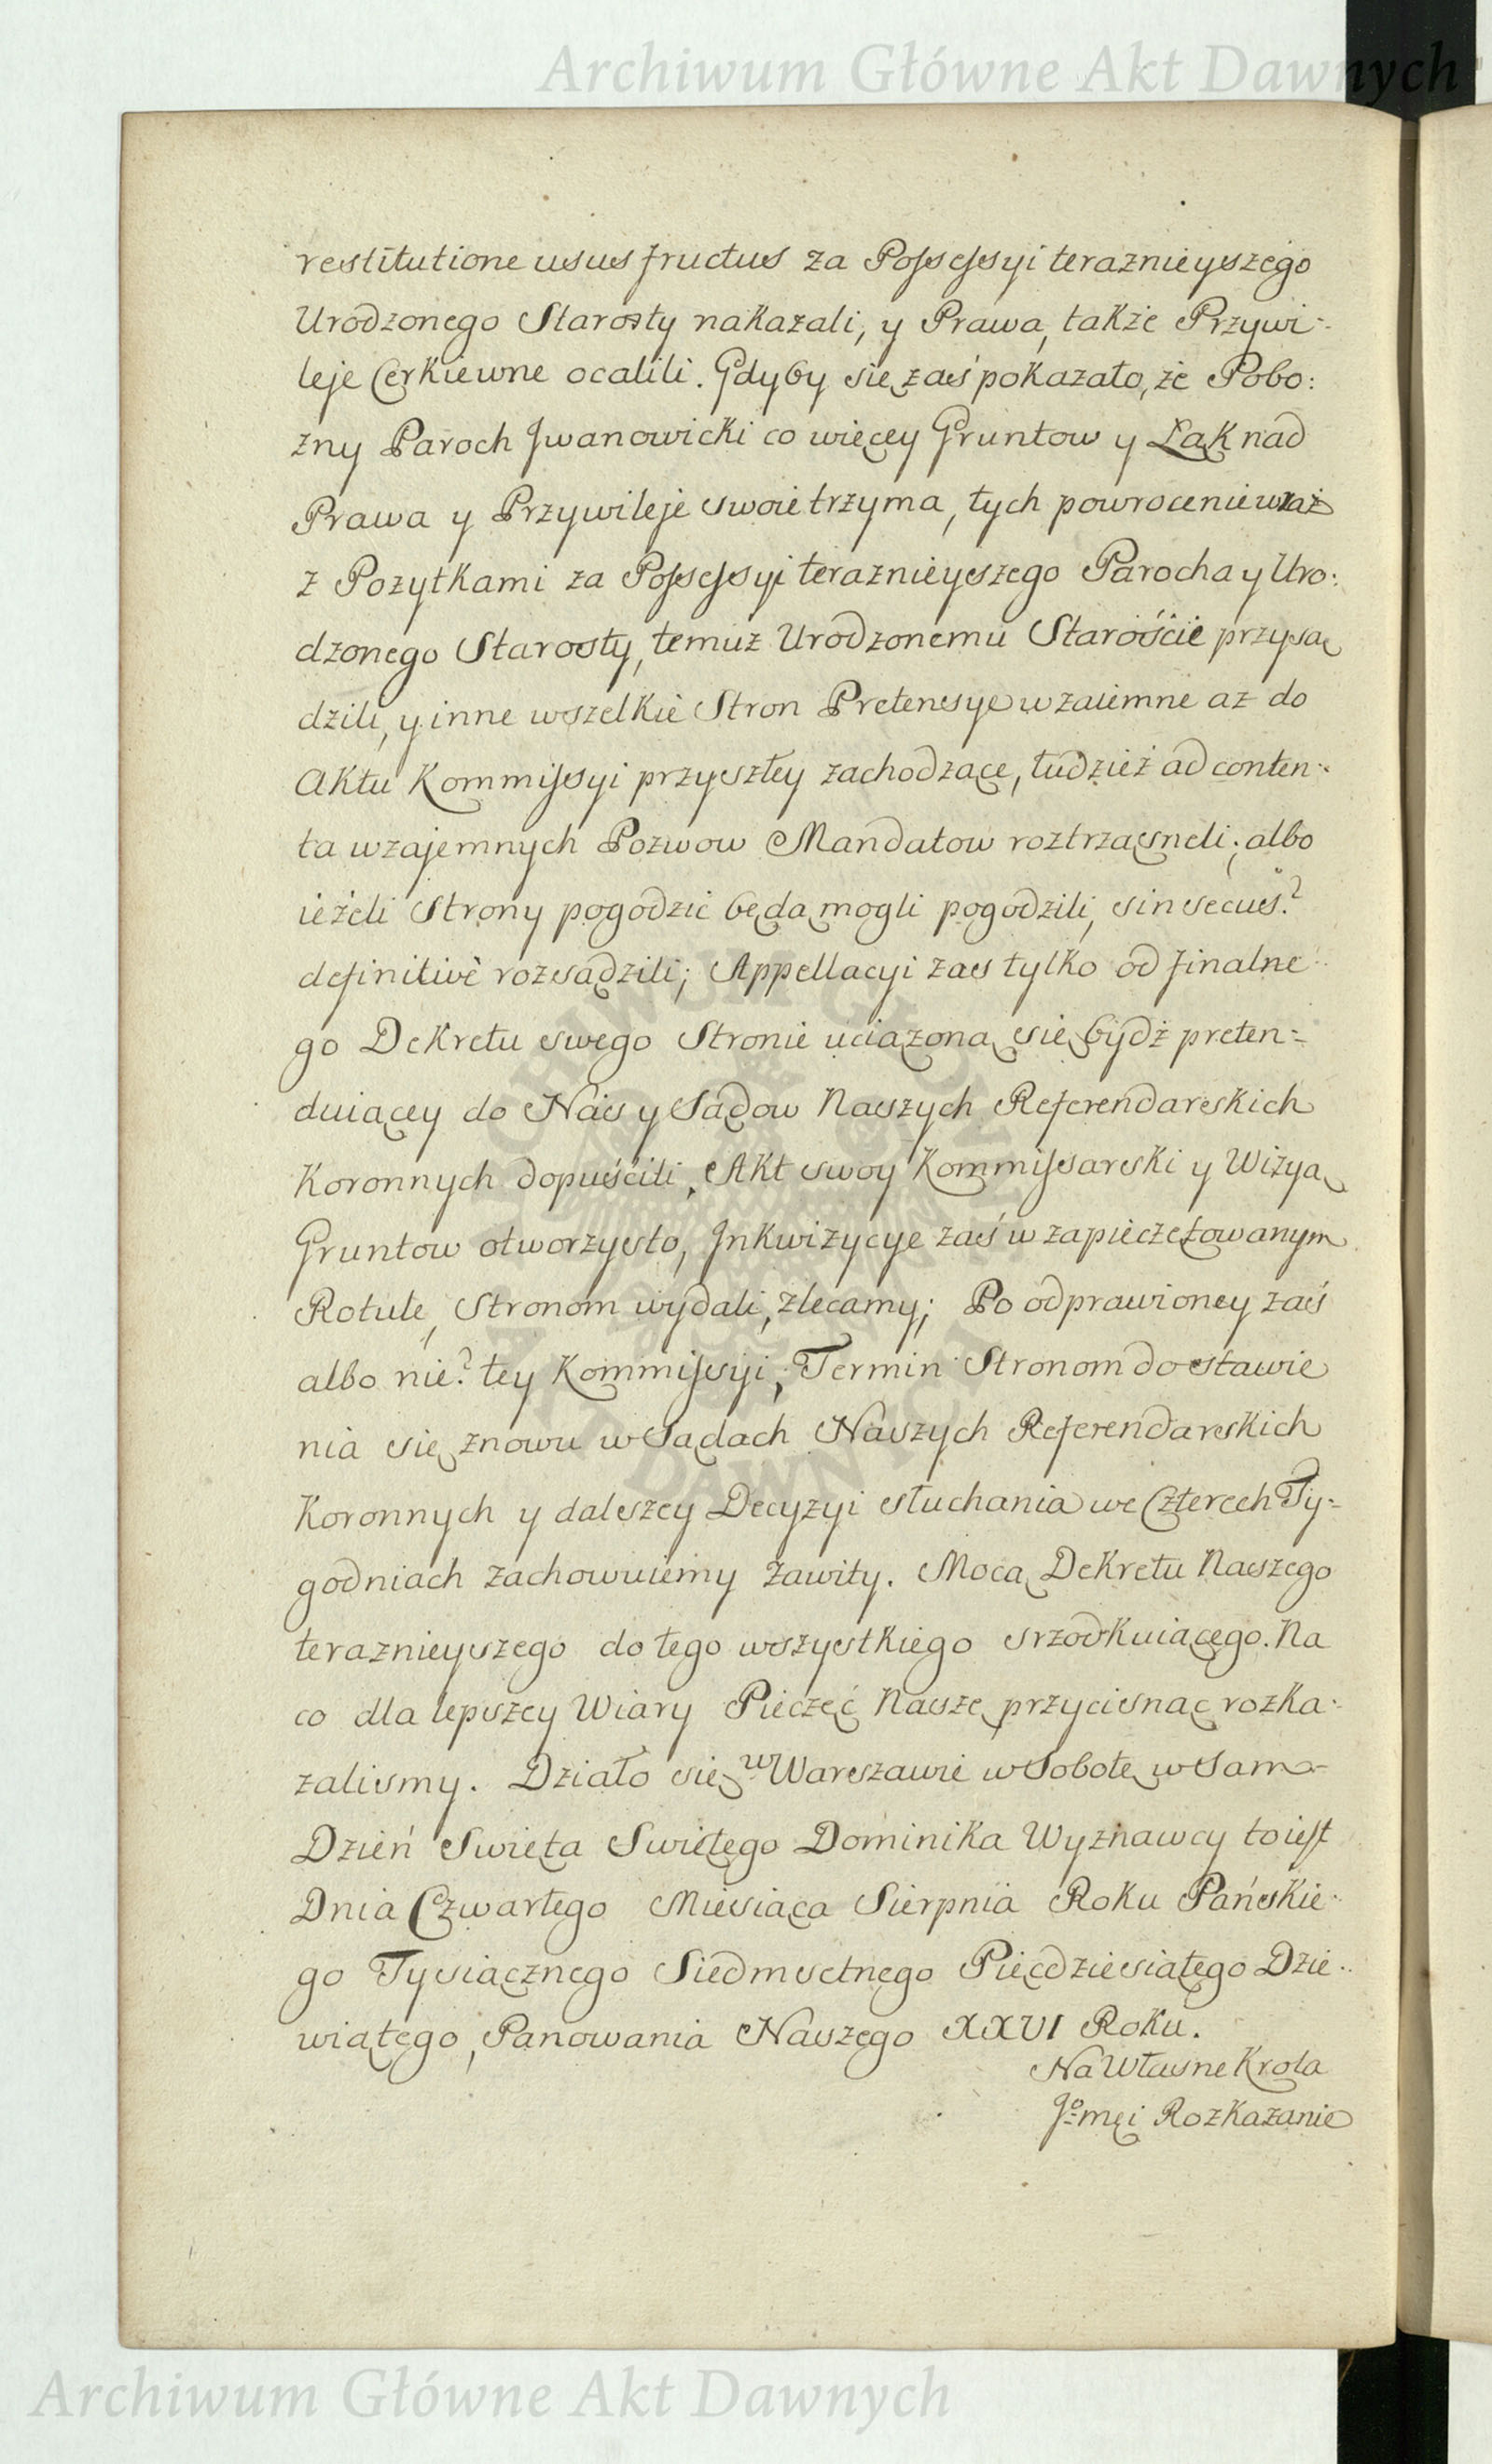 Archiwum Główne Akt Dawnych
restitutione usus fructus za Possessyi teraznieyszego
Urodzonego Starosty nakazali, y Prawa, także Przywi:
leje Cerkiewne ocalili. Gdyby się zaś pokazało, że Pobo:
zny Paroch Jwanowicki co więcey Gruntow y Łąk nad
Prawa y Przywileje swoie trzyma, tych powrocenie wraz
z Pozytkami za Possessyi teraznieyszego Parocha y Uro:
dzonego Starosty, temuz Urodzonemu Staroście przysą
dzili, y inne wszelkie Stron Pretensye wzaiemne az do
Aktu Kommissyi przyszłey zachodzące, tudzież ad conten:
ta wzajemnych Pozwow Mandatow roztrząsneli; albo
ieżeli Strony pogodzić będą mogli pogodzili, sin secus?
definitivè rozsądzili; Appellacyi zas tylko od finalne:
go Dekretu swego Stronie uciązoną się bydź preten=
duiącey do Nas y Sądow Naszych Referendarskich
Koronnych dopuścili, Akt swoy Kommissarski y Wizyą
Gruntow otworzysto, Jnkwizycye zaś w zapieczętowanym
Rotule, Stronom wydali, zlecamy; Po odprawioney zaś
albo nie? tey Kommissyi, Termin Stronom do stawie
nia się znowu w Sądach Naszych Referendarskich
Koronnych y dalszey Decyzyi słuchania we Czterech Ty=
godniach zachowuiemy zawity. Mocą Dekretu Naszego
teraznieyszego do tego wszystkiego srzodkuiącego. Na
co dla lepszey Wiary Pieczęć Naszę przycisnąc rozka:
zalismy. Działo się w Warszawie w Sobotę w Sam
Dzień Swięta Swiętego Dominika Wyznawcy to iest
Dnia Czwartego Miesiąca Sierpnia Roku Pańskie:
go Tysiącznego Siedmsetnego Pięcdziesiątego Dzie:
wiątego, Panowania Naszego XXVI Roku.
Na Własne Krola
Jo=mci Rozkazanie
Archiwum Główne Akt Dawnych